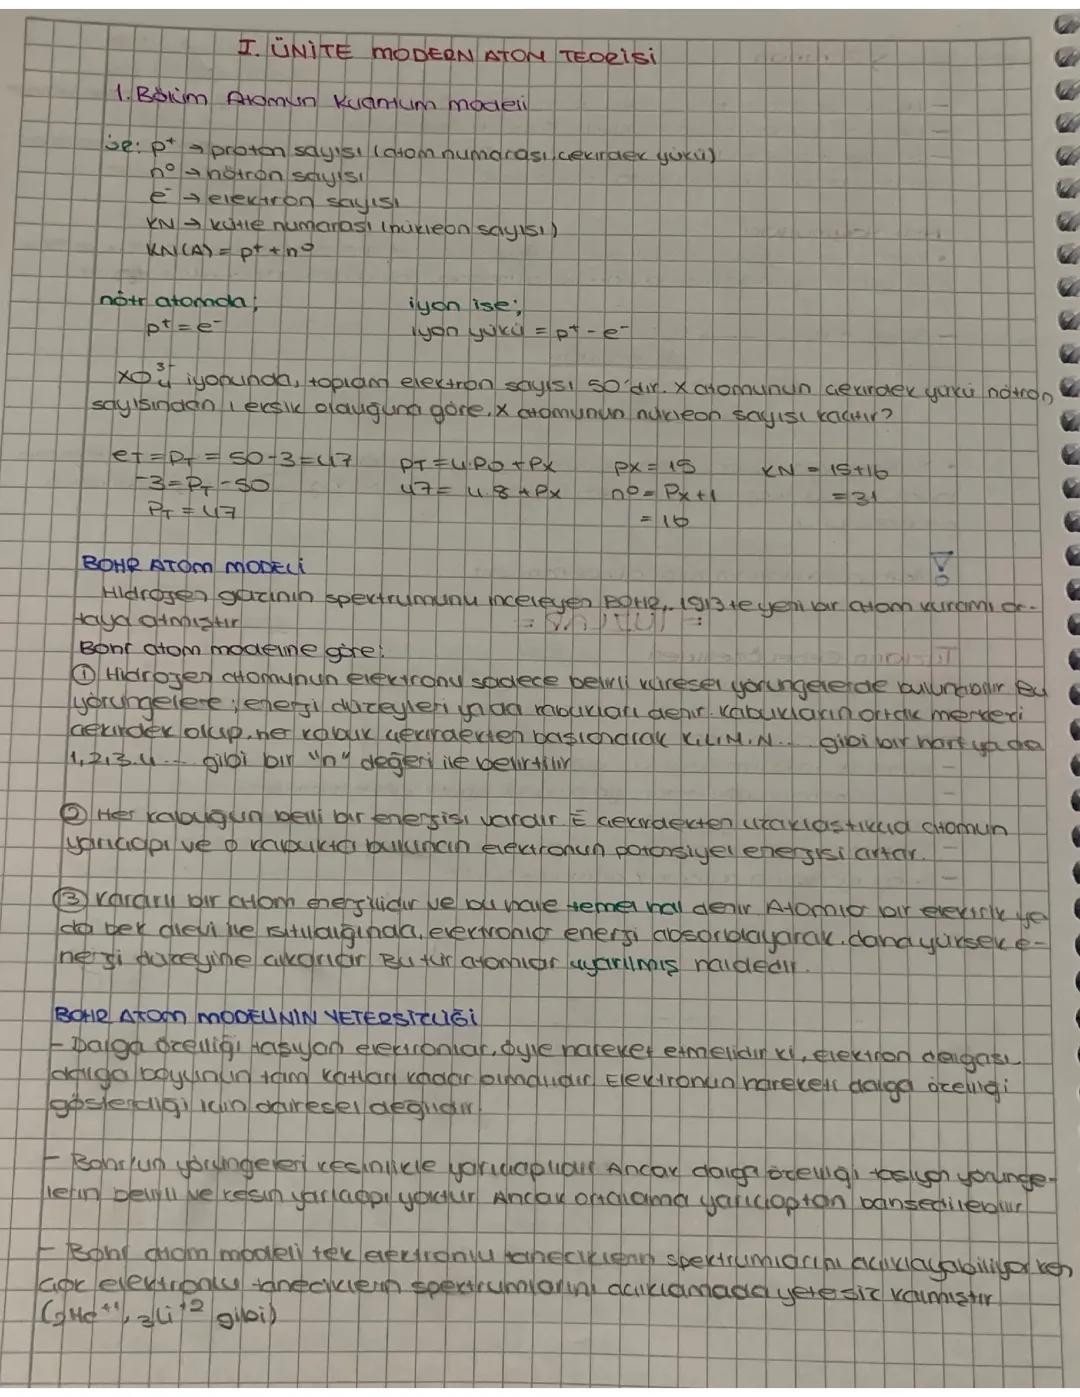 I. ÜNİTE MODERN ATOM TEORİSİ
1. Bölüm Atomun Kuantum modeli
p⁺ → proton sayısı (atom numarası, çekirdek yükü)
n⁰ → nötron sayısı
e⁻ → elektron sayısı
KN → kütle numarası (nükleon sayısı)
KN(A) = p⁺ + n⁰
nötr atomda; iyon ise;
p⁺ = e⁻ iyon yükü = p⁺ - e⁻
XO₄³⁻ iyonunda, toplam elektron sayısı 50'dir. X atomunun çekirdek yükü nötron
sayısından 1 eksik olduğuna göre, X atomunun nükleon sayısı kaçtır?
eT = PT = 50-3 = 47 PT = 4.PO + PX PX = 15 KN = 15+16
-3 = PT - 50 47 = 4.8 + PX n⁰ = PX + 1 = 31
PT = 47 = 16
BOHR ATOM MODELİ
Hidrojen gazının spektrumunu inceleyen BOHR, 1913 te yeni bir atom kuramı or-
taya atmıştır
Bohr atom modeline göre:
① Hidrojen atomunun elektronu sadece belirli küresel yörüngelerde bulunabilir Bu
yörüngelere; enerji düzeyleri ya da kabukları denir. Kabukların ortak merkezi
çekirdek olup, her kabuk çekirdekten başlanarak K,L,M,N... gibi bir harf ya da
1,2,3,4... gibi bir "n" değeri ile belirtilir
② Her kabuğun belli bir enerjisi vardır. Ē çekirdekten uzaklaştıkça atomun
yarıçapı ve o kabukta bulunan elektronun potansiyel enerjisi artar.
③ Kararlı bir atom enerjilidir ve bu hale temel hal denir Atomlar bir elektrik ya
da bek alevi ile ısıtıldığında, elektronlar enerji absorblayarak, daha yüksek e-
nerji düzeyine çıkarlar Bu tür atomlar uyarılmış haldedir.
BOHR ATOM MODELİNİN YETERSİZLİĞİ
- Dalga özelliği taşıyan elektronlar, öyle hareket etmelidir ki, elektron dalgası
dalga boyunun tam katları kadar olmalıdır Elektronun hareketi dalga özelliği
gösterdiği için dairesel değildir
- Bohr'un yörüngeleri kesinlikle yarıçaplıdır Ancak dalga özelliği taşıyan yörünge-
lerin belirli ve kesin yarıçapı yoktur Ancak ortalama yarıçaptan bahsedilebilir
- Bohr atom modeli tek elektronlu taneciklerin spektrumlarını açıklayabiliyorken
çok elektronlu taneciklerin spektrumlarını açıklamada yetersiz kalmıştır
(₂He⁺¹, ₃Li⁺² gibi)